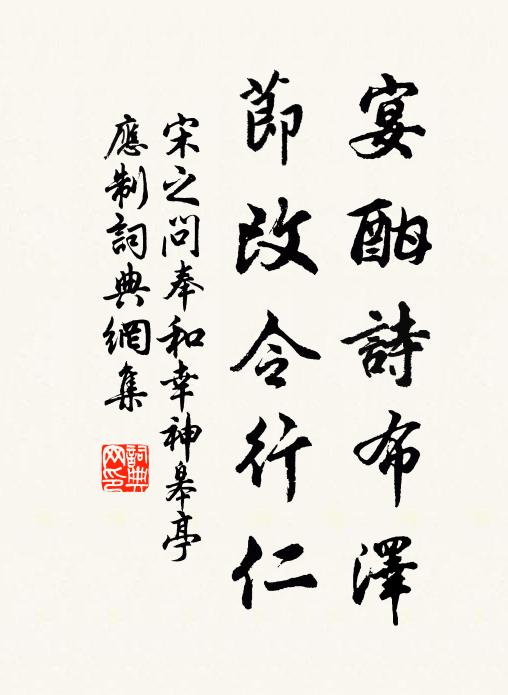 宴酣詩布澤
節改令行仁
宋之問奉和幸神皋亭
應制詞典網集
詞典网印